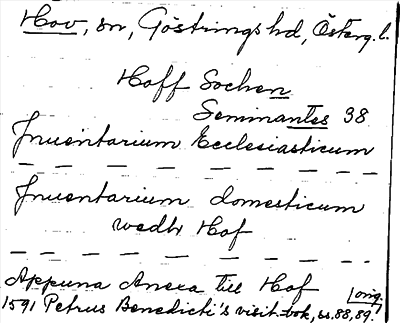 Hov, sn, Göstrings hd, Österg. l.
Hoff Sochen
Seminantes 38
Inuentarium Ecclesiasticum
Inuentarium domesticum
wedh Hof
Appuna Anexa till Hof
1591 Petrus Benedicti's visit.bok, ss. 88, 89. Lorig.